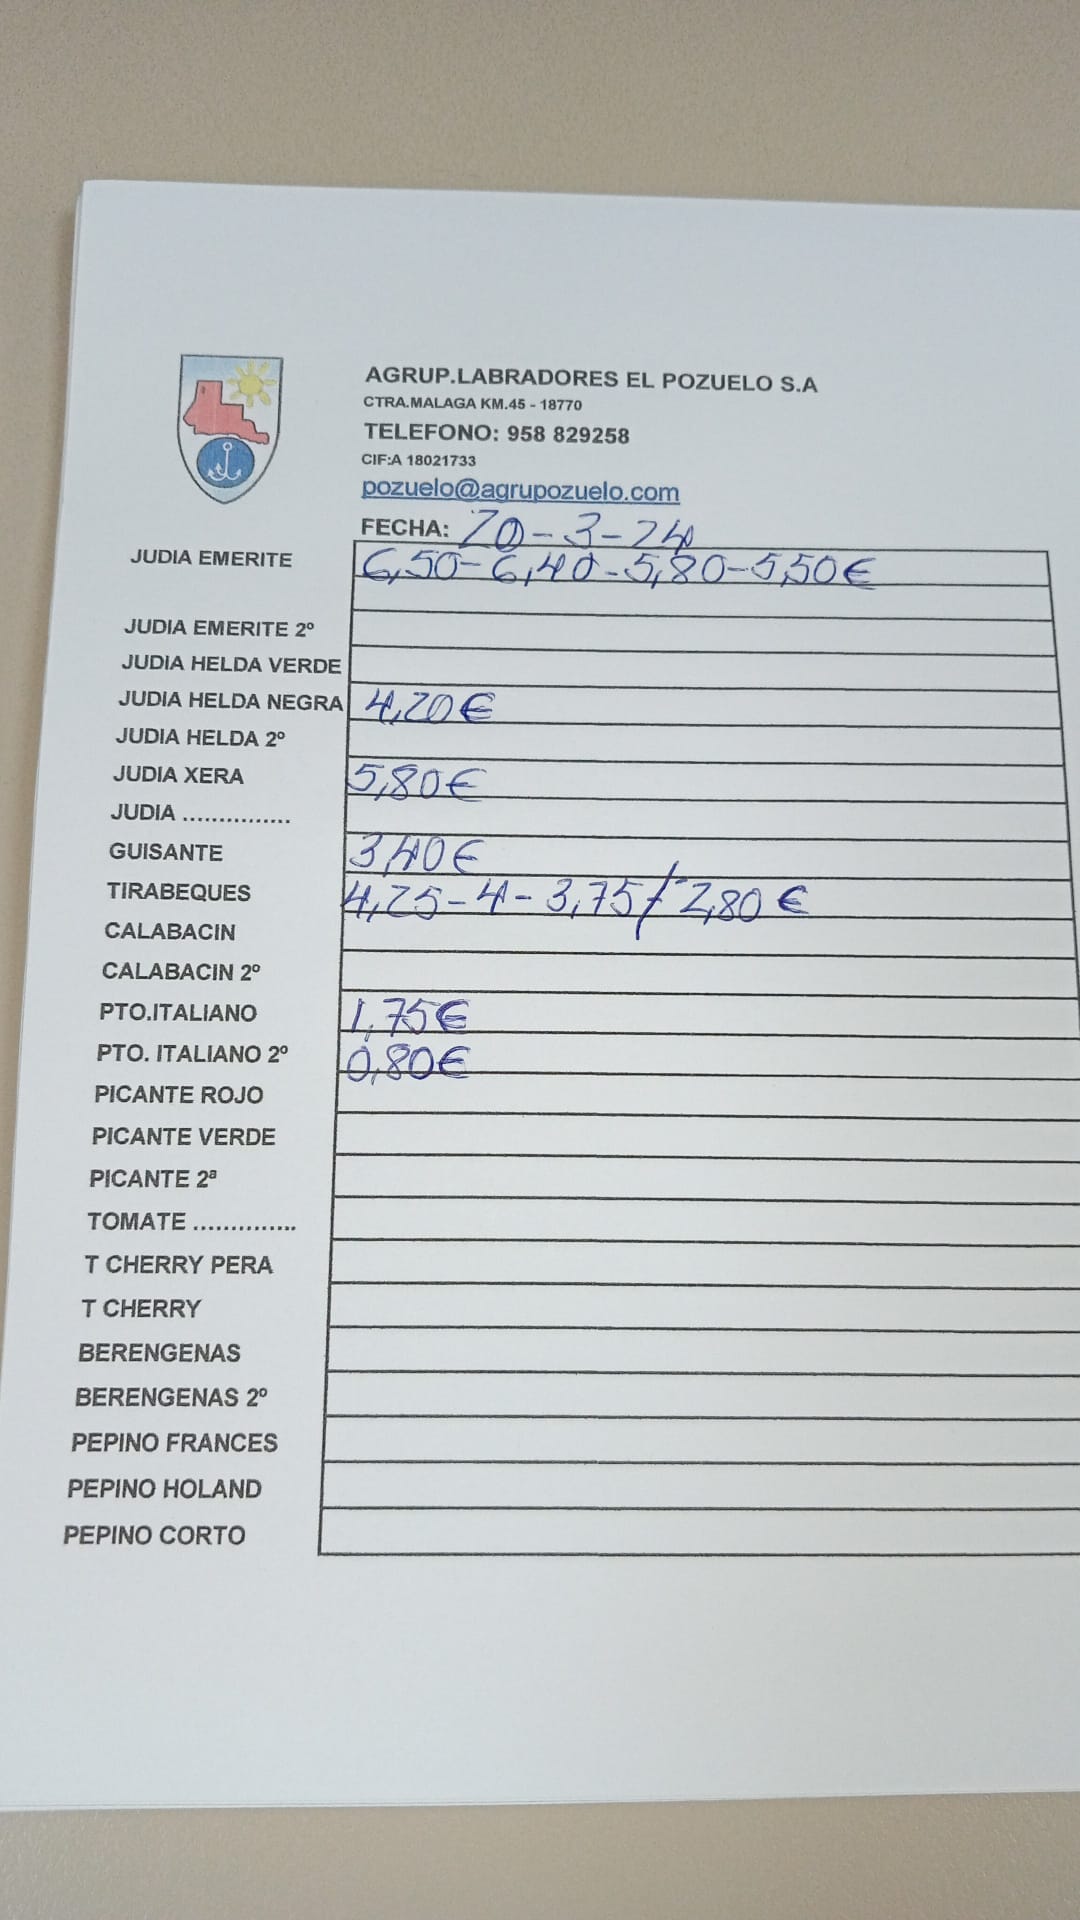 AGRUP.LABRADORES EL POZUELO S.A
CTRA.MALAGA KM.45 - 18770
TELEFONO: 958 829258
CIF:A 18021733
pozuelo@agrupozuelo.com
FECHA: 20-3-24
JUDIA EMERITE 6,50-6,40-5,80-5,50€
JUDIA EMERITE 2º
JUDIA HELDA VERDE
JUDIA HELDA NEGRA 4,20€
JUDIA HELDA 2º
JUDIA XERA 5,80€
JUDIA ...............
GUISANTE 3,40€
TIRABEQUES 4,25-4-3,75/2,80€
CALABACIN
CALABACIN 2º
PTO.ITALIANO 1,75€
PTO. ITALIANO 2º 0,80€
PICANTE ROJO
PICANTE VERDE
PICANTE 2ª
TOMATE ..............
T CHERRY PERA
T CHERRY
BERENGENAS
BERENGENAS 2º
PEPINO FRANCES
PEPINO HOLAND
PEPINO CORTO